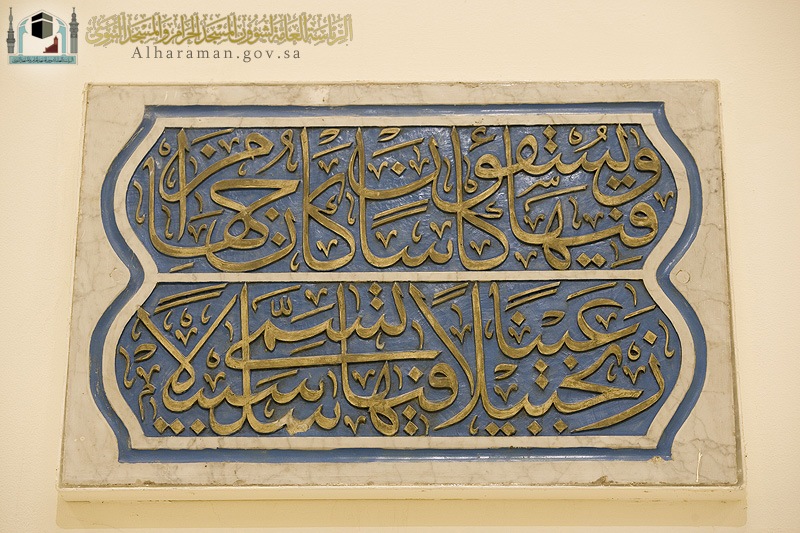 الرئاسة العامة لشؤون المسجد الحرام والمسجد النبوي
Alharaman.gov.sa
ويسقون فيها كأسا كان مزاجها
زنجبيلا عينا فيها تسمى سلسبيلا